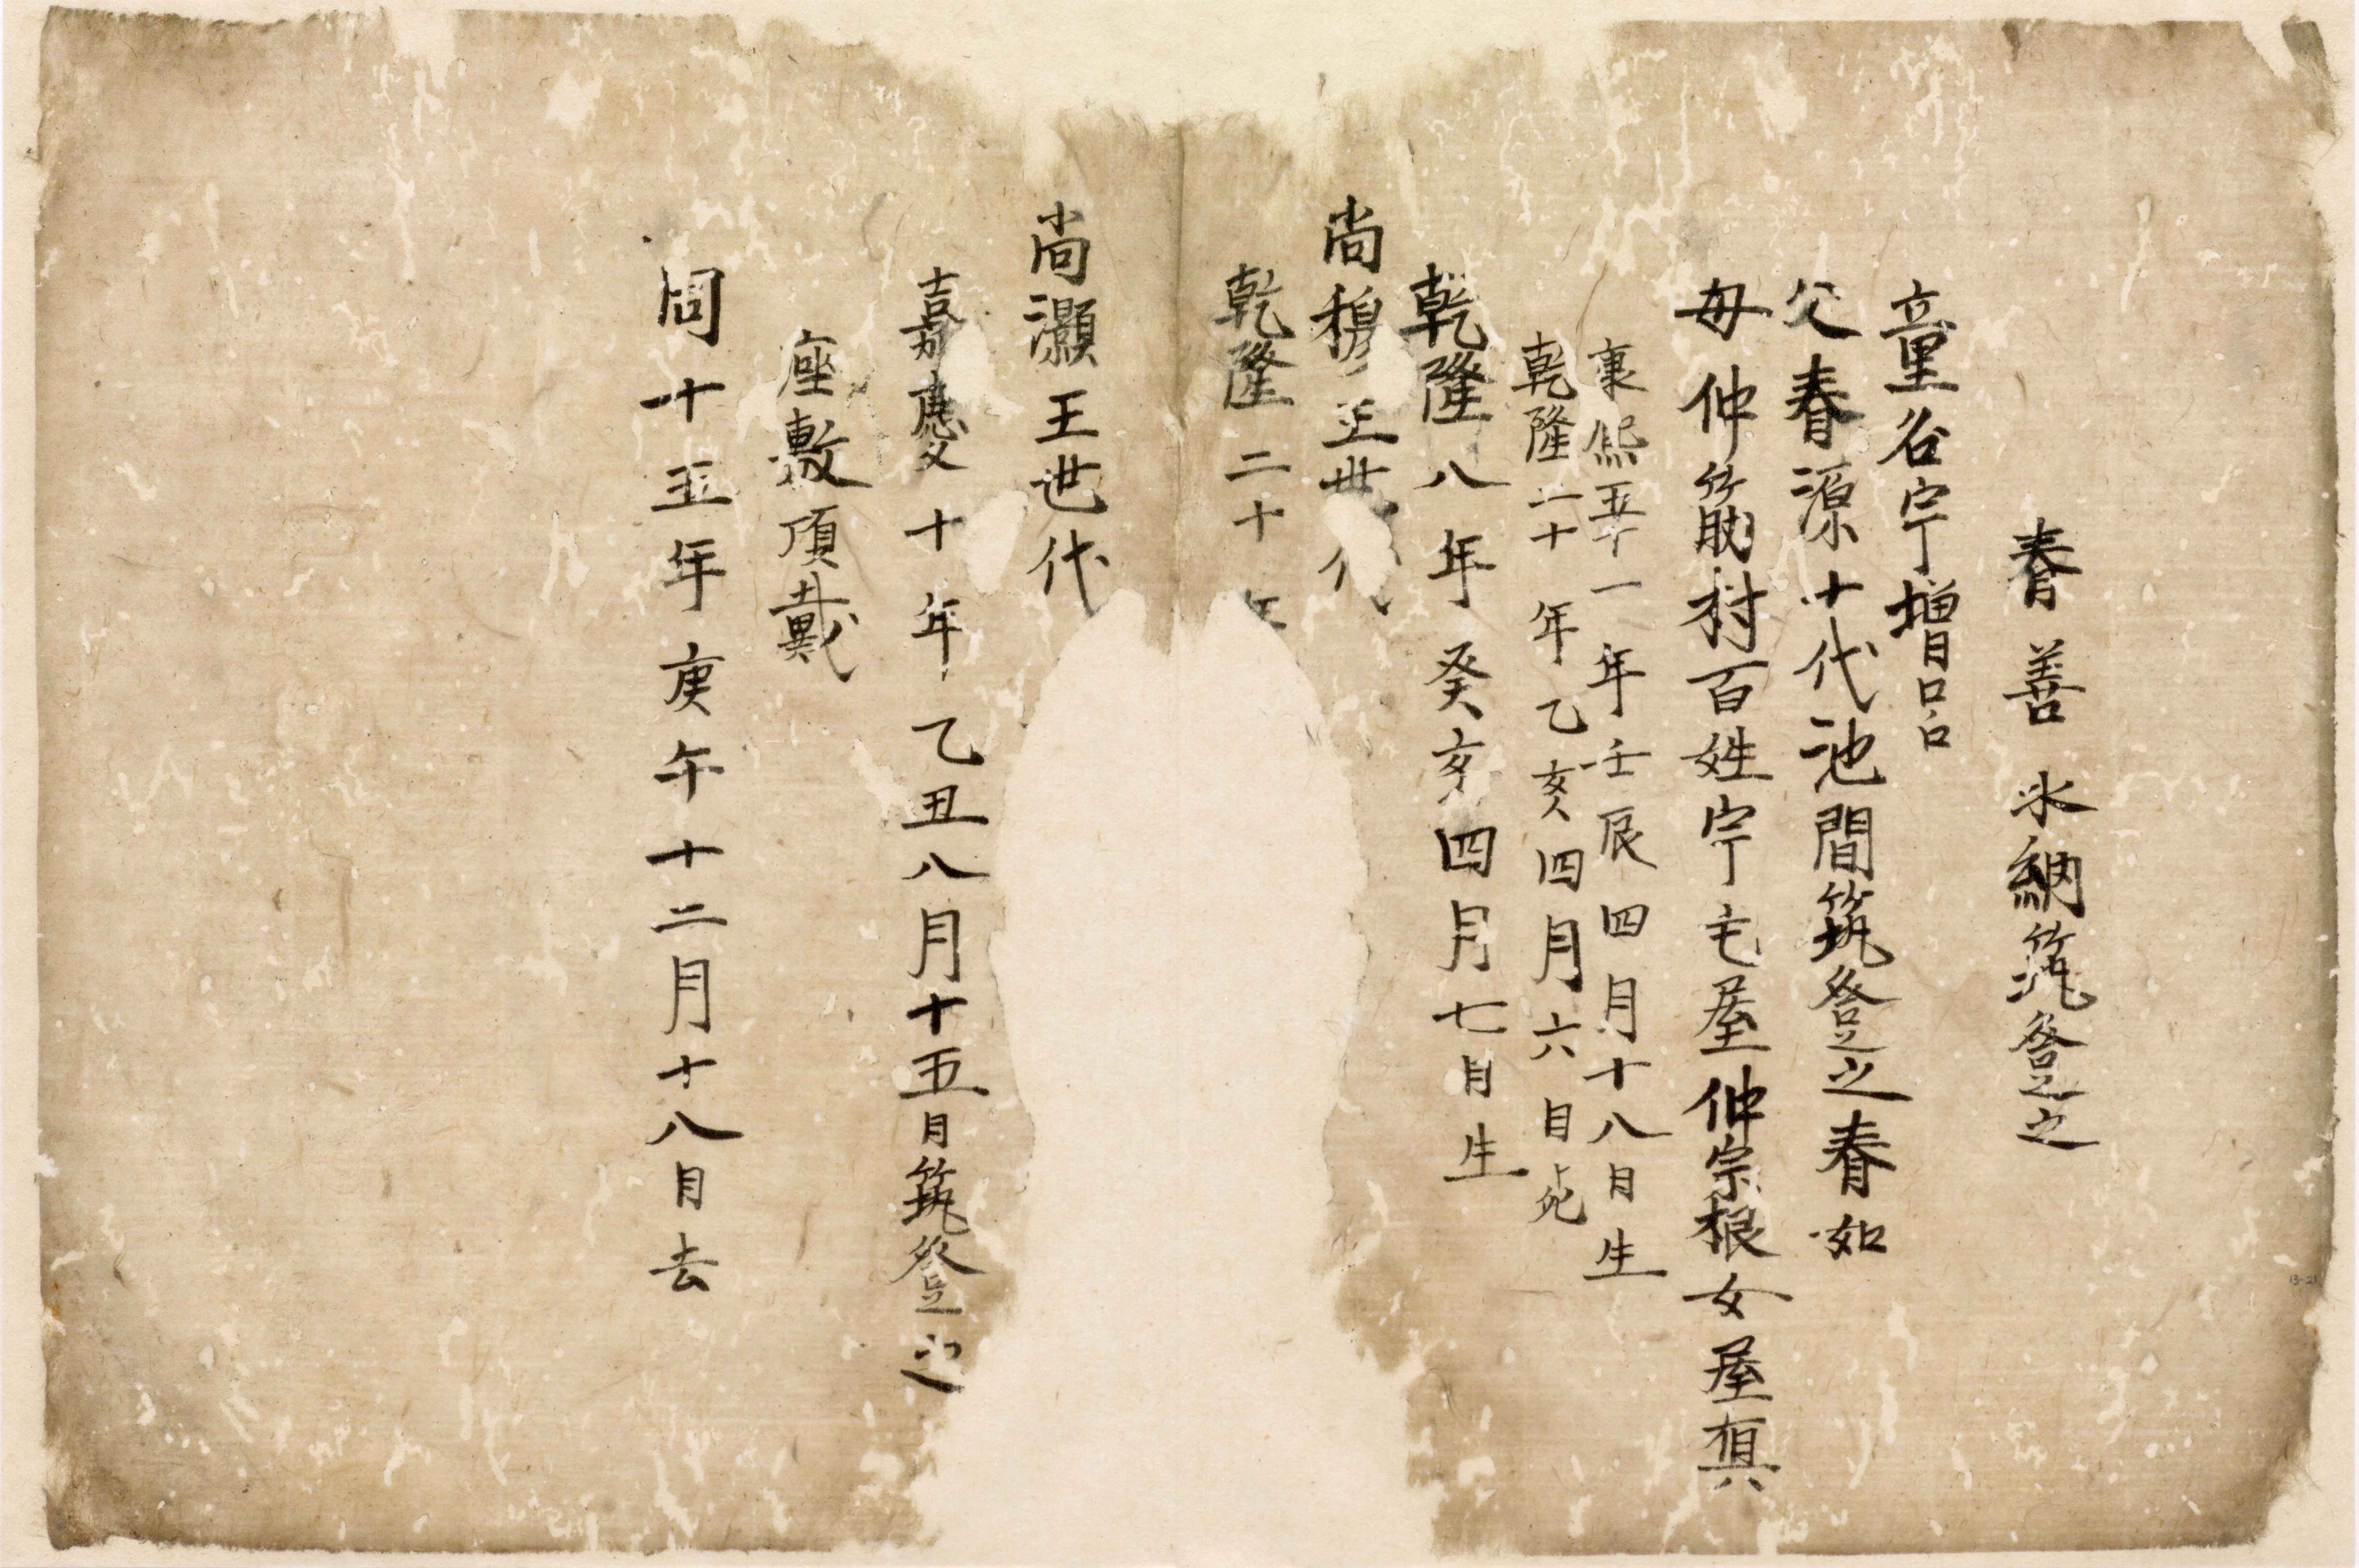 春善氷納筑登之
童名宇増呂
父春源十代池間筑登之春如
母仲筋村百姓宇屋仲宗根女屋真
康熙五十一年壬辰四月十八日生
乾隆二十年乙亥四月六日死
乾隆八年癸亥四月七日生
尚穆王世代
乾隆二十年
尚灝王世代
嘉慶十年乙丑八月十五日筑登之
座敷頂戴
同十五年庚午十二月十八日去
13-21